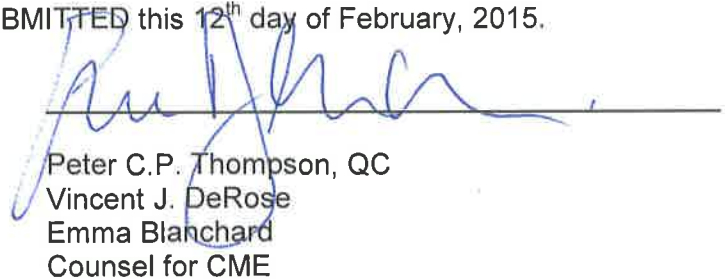 BMITTED this 12th day of February, 2015.
Peter C.P. Thompson, QC
Vincent J. DeRose
Emma Blanchard
Counsel for CME